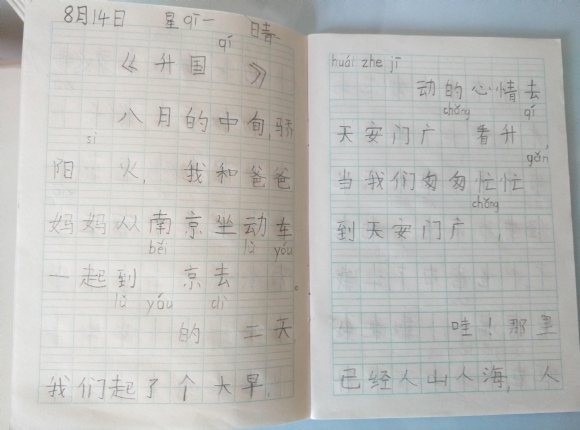 8月14日 星qī一 晴
qí
《升国 》
八月的中旬,骄
sì
阳 火, 我和爸爸
妈妈从南京坐动车
běi lǚ yóu
一起到 京去 。
lǚ yóu dì
的 二天
我们起了个大早,
huái zhe jī
动的心情去
chǎng qí
天安门广 看升
gǎn
当我们匆匆忙忙
chǎng
到天安门广 ,
哇!那里
已经人山人海,人